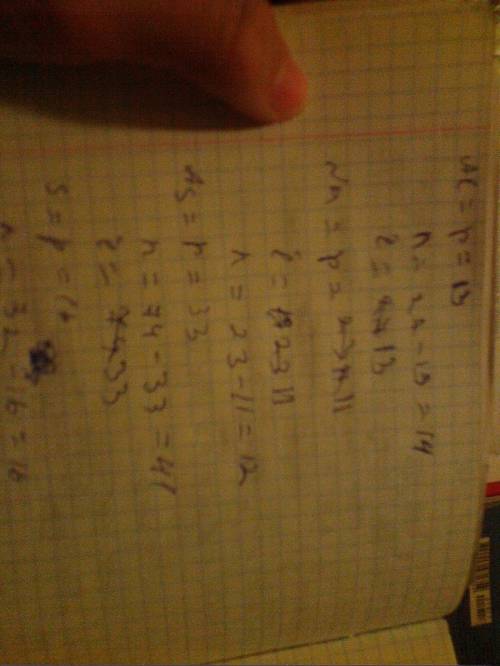 Al = p = 13
n = 27 - 13 = 14
e = 13
Na = p = 11
e = 11
n = 23 - 11 = 12
As = p = 33
n = 74 - 33 = 41
e = 33
S = p = 16
n = 32 - 16 = 16